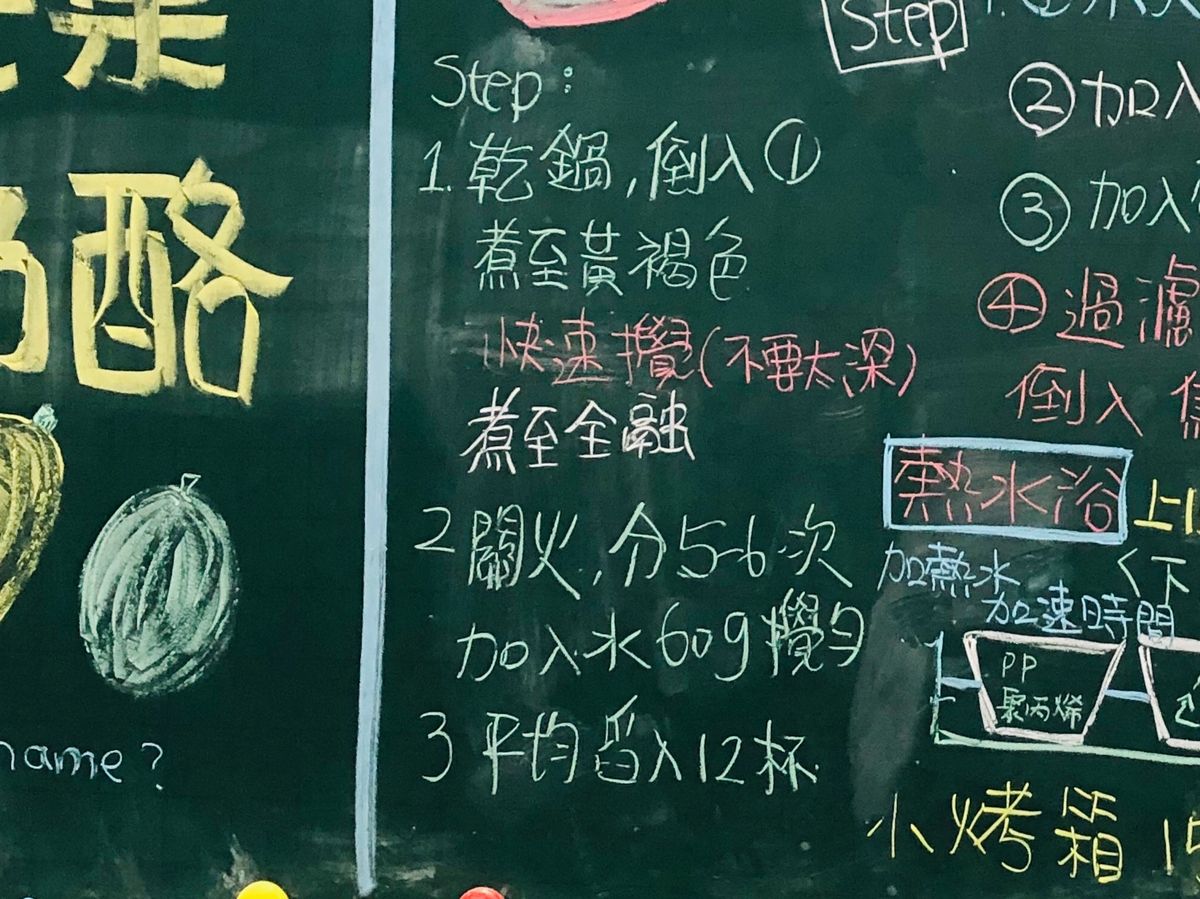 酪
name?
Step:
1. 乾鍋,倒入①
煮至黃褐色
快速攪(不要太深)
煮至全融
2 關火,分5-6次
加入水60g攪勻
3 平均舀入12杯
Step
②加入
③加入
④過濾
倒入
熱水浴
加熱水
加速時間
PP
聚丙烯
小烤箱